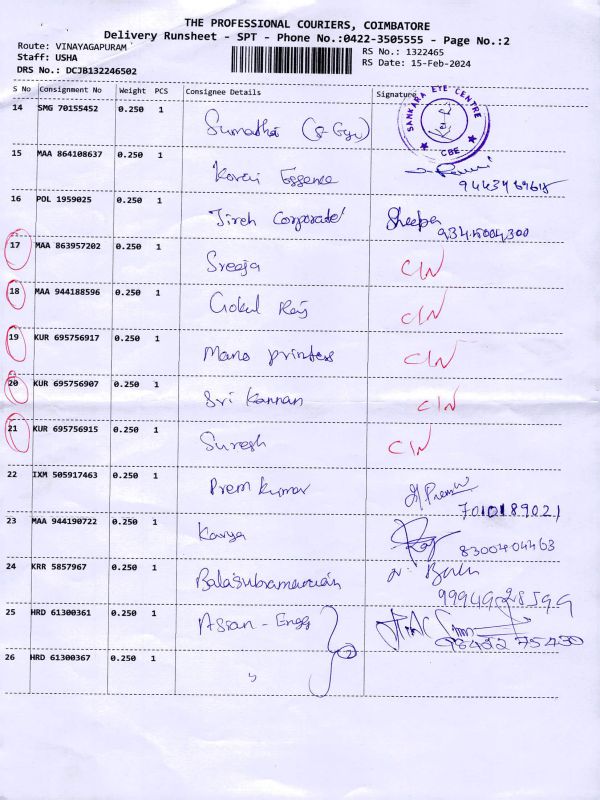 THE PROFESSIONAL COURIERS, COIMBATORE
Delivery Runsheet - SPT - Phone No.:0422-3505555 - Page No.:2
Route: VINAYAGAPURAM
RS No.: 1322465
Staff: USHA
RS Date: 15-Feb-2024
DRS No.: DCJB132246502
S No Consignment No Weight PCS Consignee Details Signature
14 SMG 70155452 0.250 1 Sumathi
SANKARA EYE CENTRE
CBE
15 MAA 864108637 0.250 1 Korai Essence
16 POL 1959025 0.250 1 Jireh Corporate
9345004300
17 MAA 863957202 0.250 1 Sreeja CIN
18 MAA 944188596 0.250 1 Gokul Raj CIN
19 KUR 695756917 0.250 1 Mano printers CIN
20 KUR 695756907 0.250 1 Sri Kannan CIN
21 KUR 695756915 0.250 1 Suresh CIN
22 IXM 505917463 0.250 1 Prem Kumar
7010189021
23 MAA 944190722 0.250 1 Kavya
8300404463
24 KRR 5857967 0.250 1 Balasubramanian
25 HRD 61300361 0.250 1 Assan - Engg
26 HRD 61300367 0.250 1 "
2